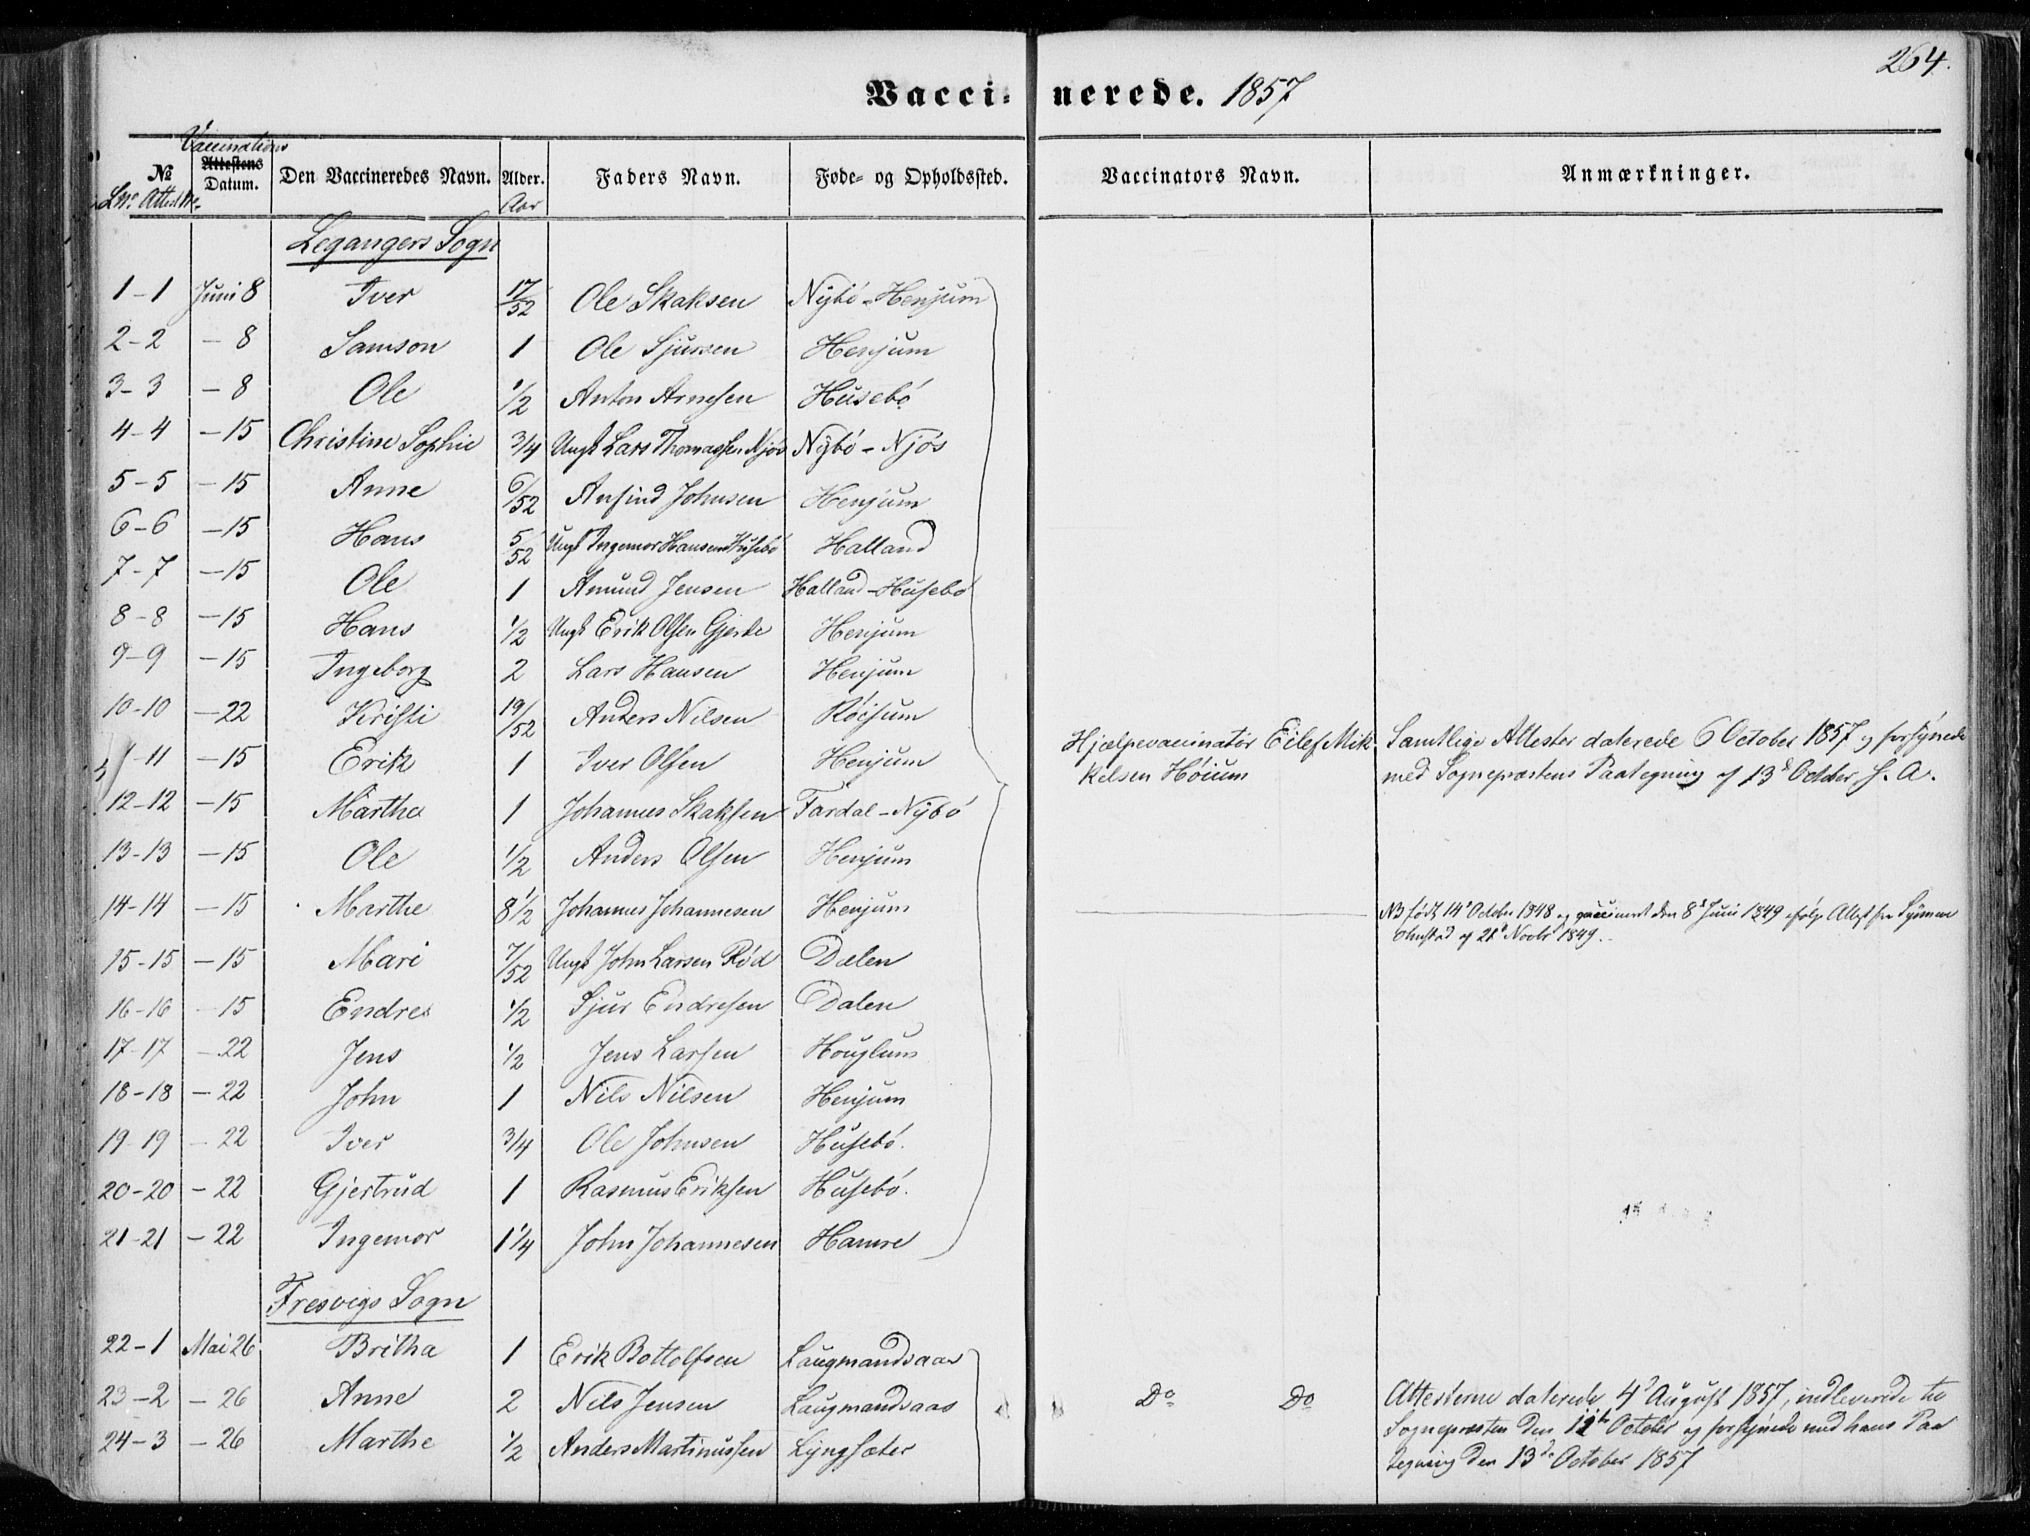 264.
Vaccinerede. 1857
Vaccinations
№ Attestens Datum. Den Vaccineredes Navn. Alder. Faders Navn. Føde- og Opholdssted. Vaccinators Navn. Anmærkninger.
Aar
Legangers Sogn
1-1 Juni 8 Iver 17/52 Ole Skaksen Nybø-Henjum
2-2 - 8 Samson 1 Ole Sjursen Henjum
3-3 - 8 Ole 1/2 Anton Arnesen Husebø
4-4 - 15 Christine Sophie 3/4 Ungk Lars Thomassen Njøs Nybø-Njøs
5-5 - 15 Anne 6/52 Anfind Johnsen Henjum
6-6 - 15 Hans 5/52 Ungk Ingemor Hansen Husebø Halland
7-7 - 15 Ole 1 Amund Jensen Halland-Husebø
8-8 - 15 Hans 1/2 Ungk Erik Olsen Gjerde Henjum
9-9 - 15 Ingeborg 2 Lars Hansen Henjum
10-10 - 22 Kristi 19/52 Anders Nilsen Røisum
11-11 - 15 Erik 1 Iver Olsen Henjum Hjælpevaccinatør Eilef Mik- Samtlige Attester daterede 6 October 1857 og forsynede
kelsen Høium med Sognepræstens Paategning af 13d October s. A.
12-12 - 15 Marthe 1 Johannes Skaksen Fardal-Nybø
13-13 - 15 Ole 1/2 Anders Olsen Henjum
14-14 - 15 Marthe 8 1/2 Johannes Johannesen Henjum NB født 14d October 1848 og vaccineret den 8d Juni 1849 ifølge Attest fra
af 21d Novbr 1849.
15-15 - 15 Mari 7/52 Ungk John Larsen Rød Dalen
16-16 - 15 Endre 1/2 Sjur Endresen Dalen
17-17 - 22 Jens 1/2 Jens Larsen Houglum
18-18 - 22 John 1 Nils Nilsen Henjum
19-19 - 22 Iver 3/4 Ole Johnsen Husebø.
20-20 - 22 Gjertrud 1 Rasmus Eriksen Husebø.
21-21 - 22 Ingemor 1 1/4 John Johannesen Hamre
Fresvigs Sogn
22-1 Mai 26 Britha 1 Erik Bottolfsen Laugmandsaas
23-2 - 26 Anne 2 Nils Jensen Laugmandsaas Do Do Attesterne daterede 4d August 1857, indleverede til
Sognepræsten den October og forsynede med hans Paa
24-3 - 26 Marthe 1/2 Anders Martinussen Lyngsæter
tegning den 13de October 1857